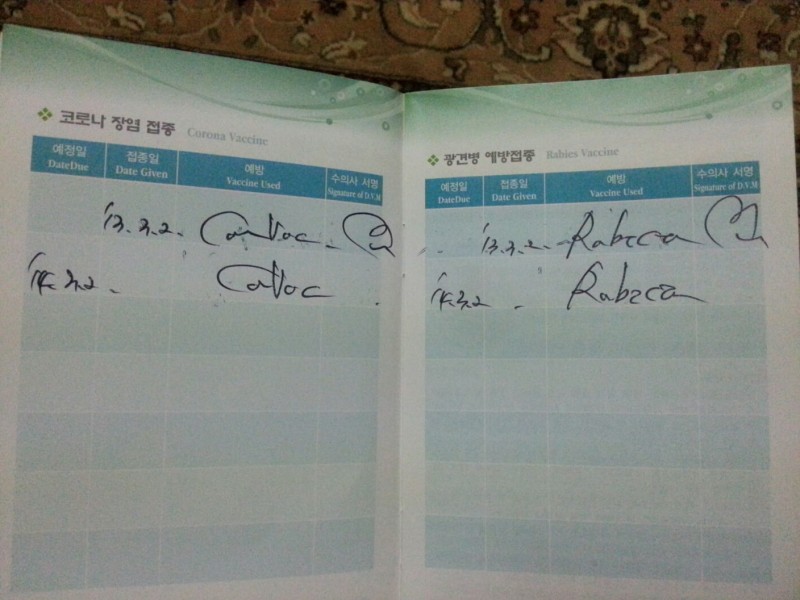 코로나 장염 접종 Corona Vaccine
예정일 접종일 예방 수의사 서명
DateDue Date Given Vaccine Used Signature of D.V.M
'13.3.2.
'14.3.2.
광견병 예방접종 Rabies Vaccine
예정일 접종일 예방 수의사 서명
DateDue Date Given Vaccine Used Signature of D.V.M
'13.3.2.
'14.3.2